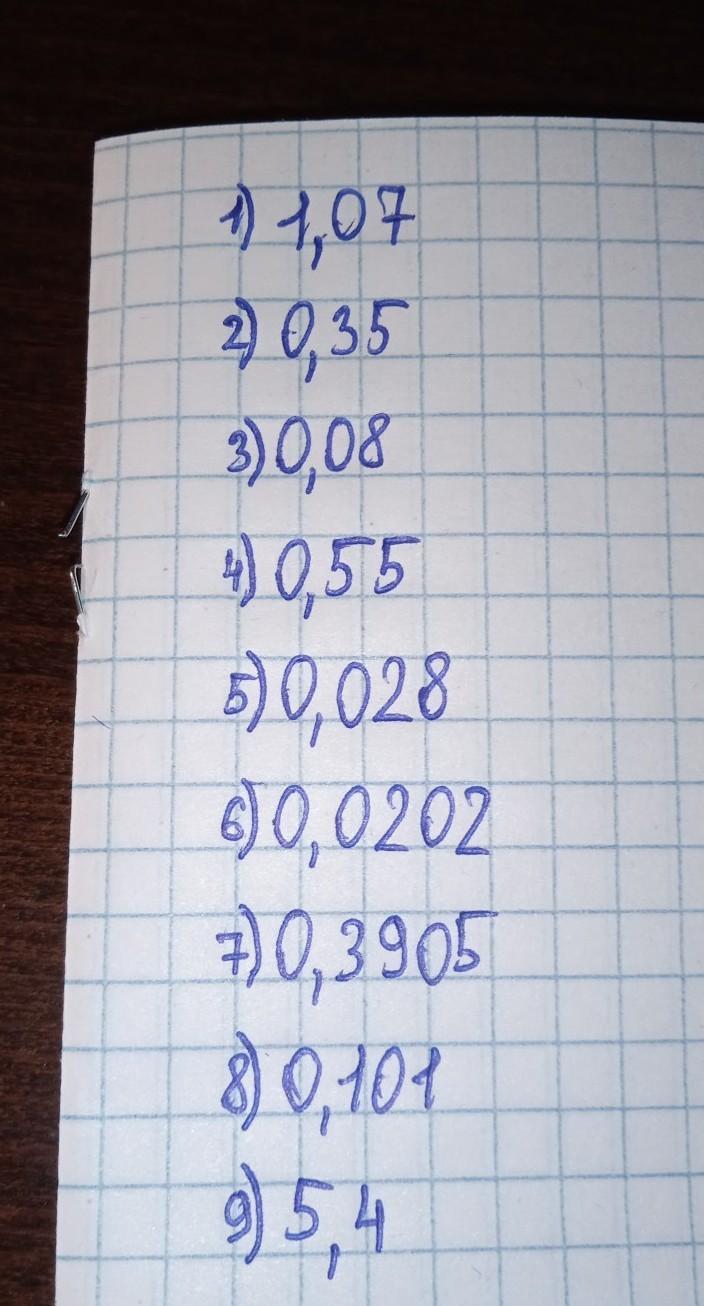 1) 1,07
2) 0,35
3) 0,08
4) 0,55
5) 0,028
6) 0,0202
7) 0,3905
8) 0,101
9) 5,4